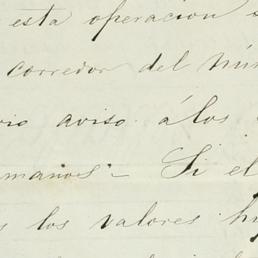 esta operacion
corredor del
aviso á los
manos - Si el
los valores